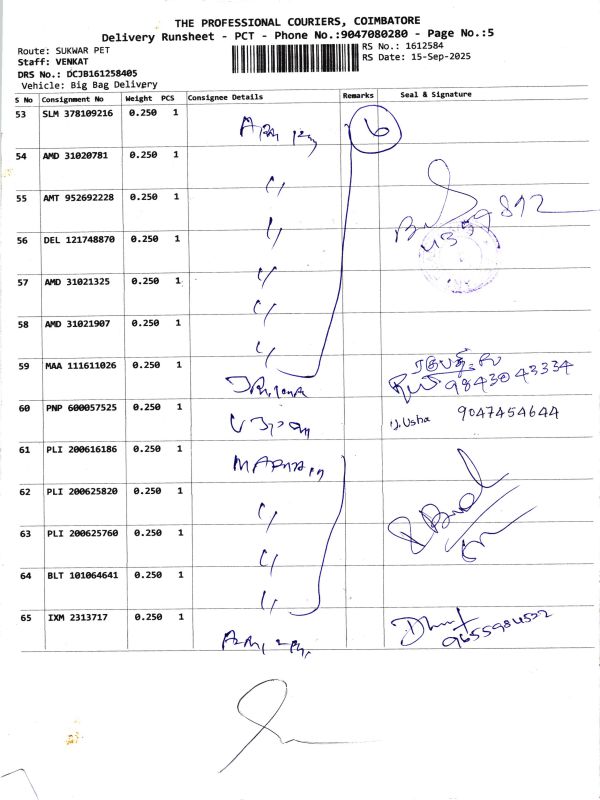 THE PROFESSIONAL COURIERS, COIMBATORE
Delivery Runsheet - PCT - Phone No.:9047080280 - Page No.:5
Route: SUKWAR PET
RS No.: 1612584
Staff: VENKAT
RS Date: 15-Sep-2025
DRS No.: DCJB161258405
Vehicle: Big Bag Delivery
S No Consignment No Weight PCS Consignee Details Remarks Seal & Signature
53 SLM 378109216 0.250 1
54 AMD 31020781 0.250 1 〃
55 AMT 952692228 0.250 1 〃
56 DEL 121748870 0.250 1 〃
57 AMD 31021325 0.250 1 〃
58 AMD 31021907 0.250 1 〃
59 MAA 111611026 0.250 1 9843043334
60 PNP 600057525 0.250 1 U.Usha 9047454644
61 PLI 200616186 0.250 1
62 PLI 200625820 0.250 1 〃
63 PLI 200625760 0.250 1 〃
64 BLT 101064641 0.250 1 〃
65 IXM 2313717 0.250 1